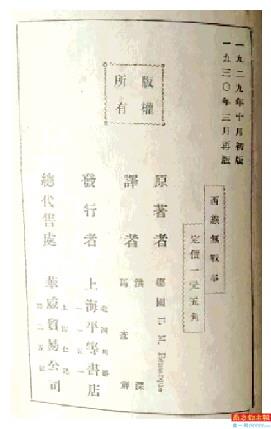 一九二九年十月初版
一九三〇年三月再版
西線無戰事
定價一元五角
版權
所有
原著者 德國E. M. Remarque
譯者 洪深
馬彥祥
發行者 上海平等書店
總代售處 華威貿易公司